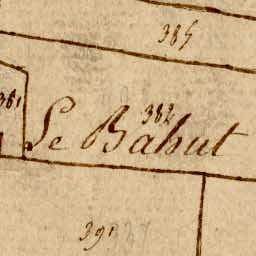 385
381
382
Le Bahut
391